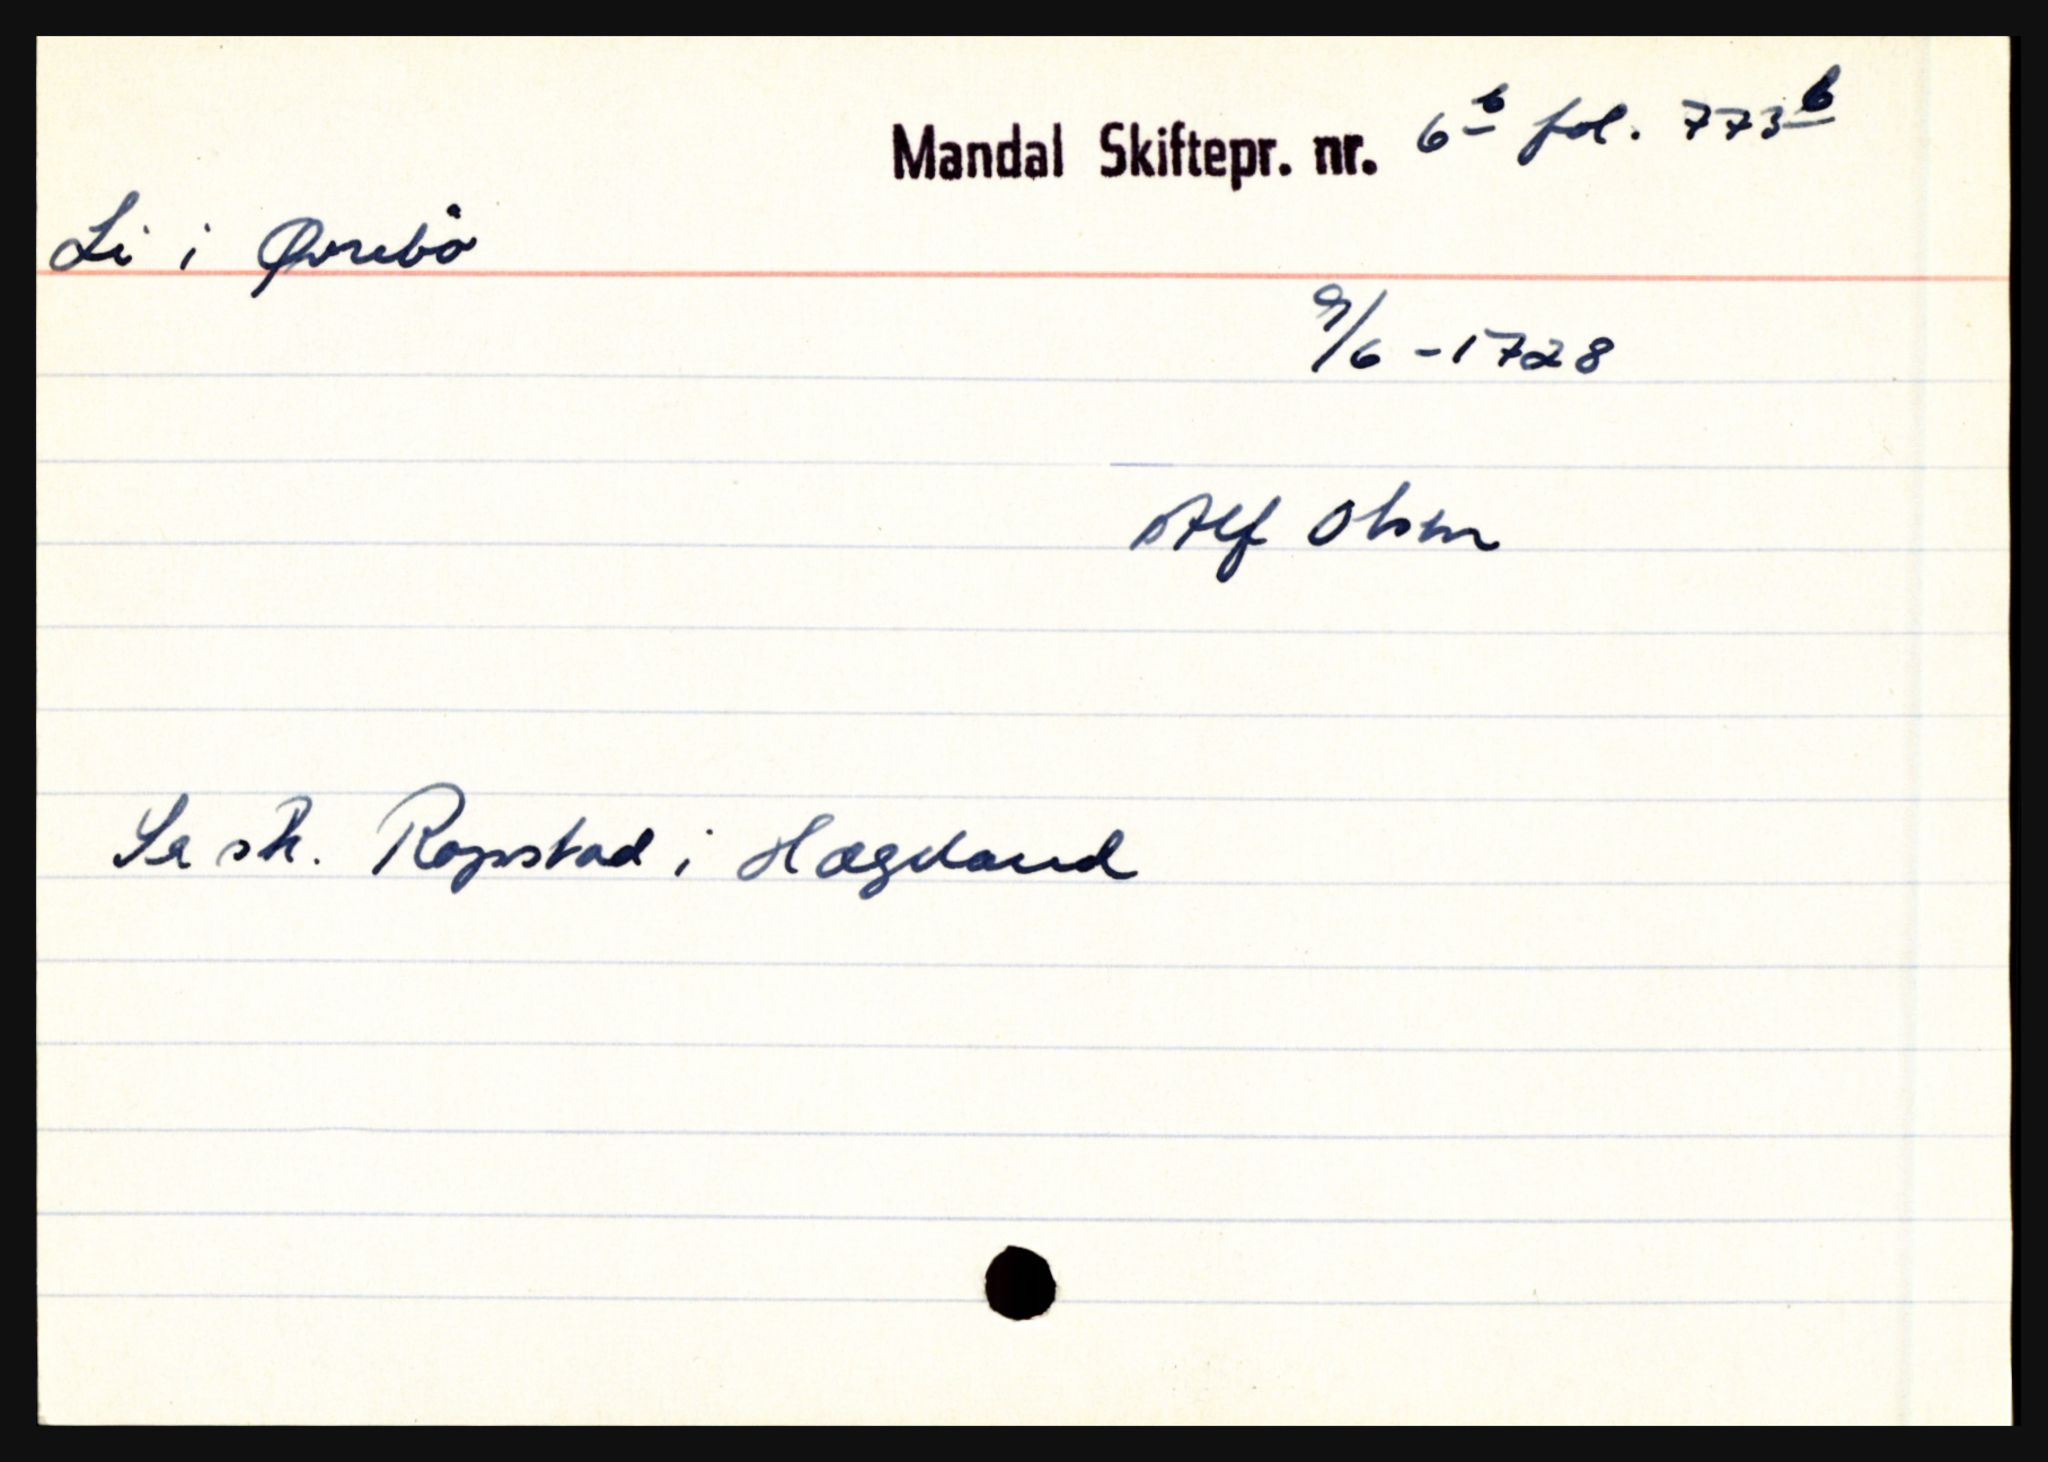 Mandal Skiftepr. nr. 6b fol. 773b
Li i Øvrebö
9/6 - 1728
Alf Olsen
Se sk. Ropstad i Hægeland